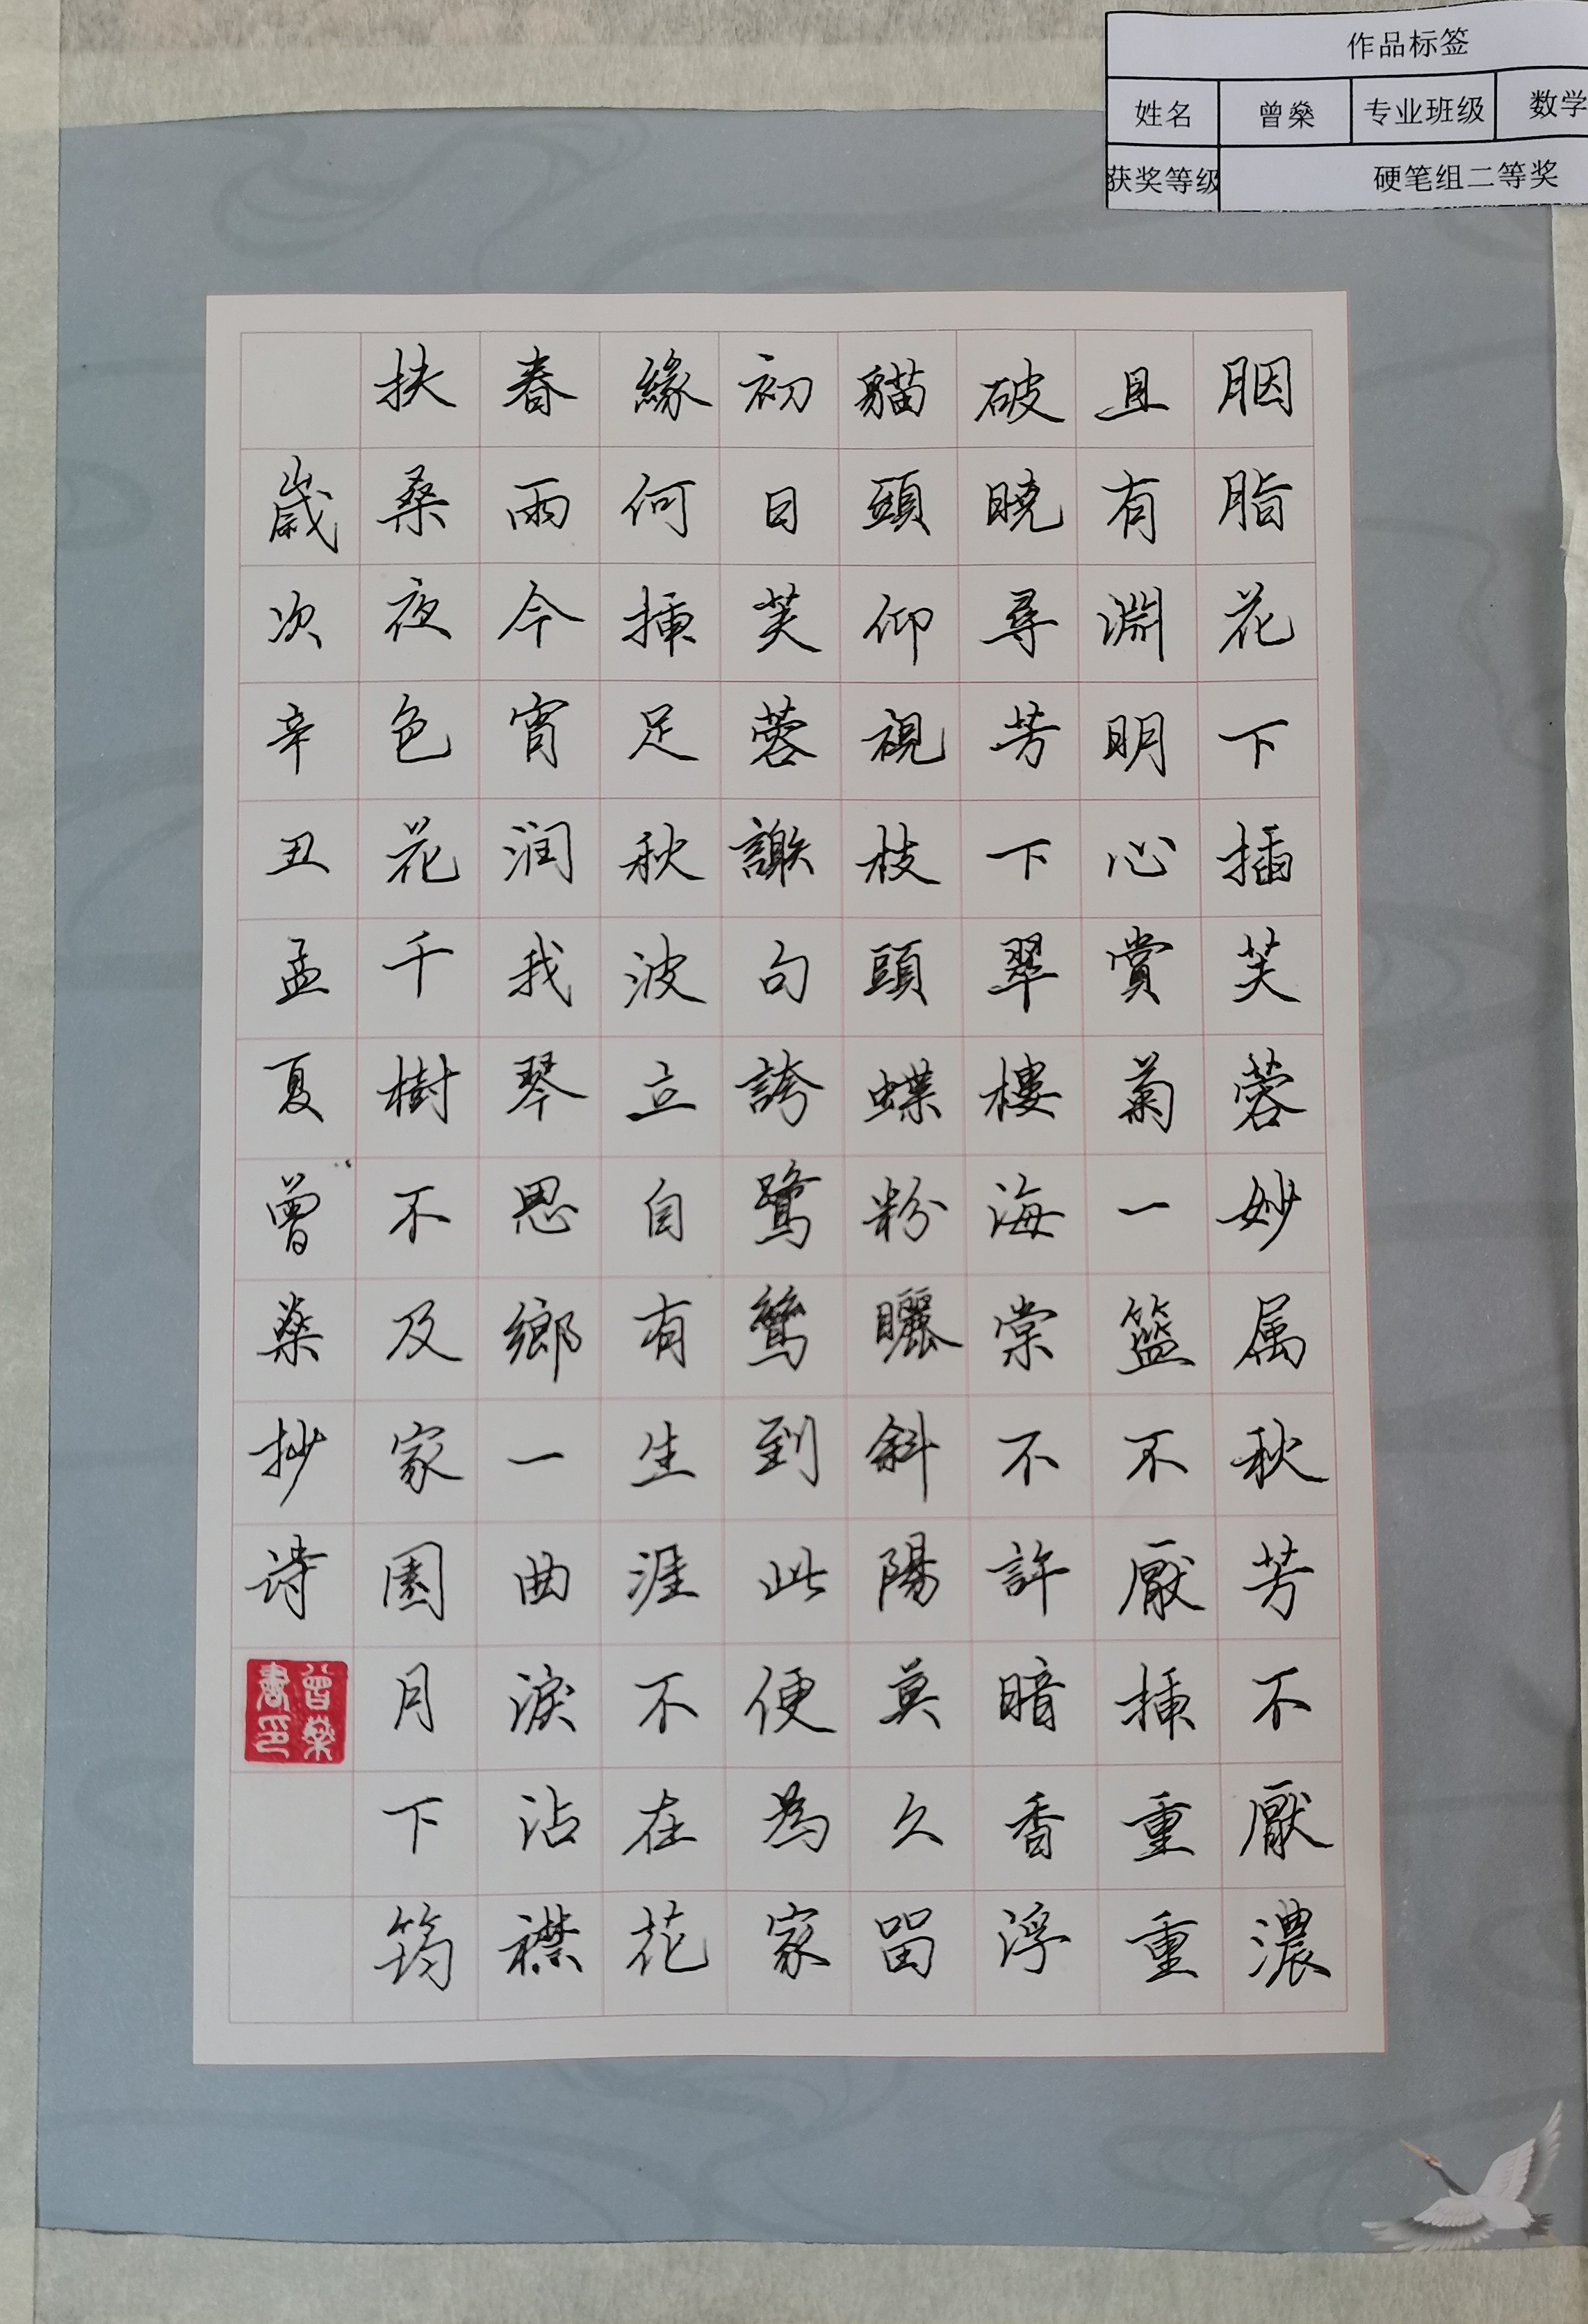 作品标签
姓名 曾燊 专业班级 数学
获奖等级 硬笔组二等奖
胭脂花下插芙蓉妙属秋芳不厭濃
且有淵明心賞菊一籃不厭插重重
破曉尋芳下翠樓海棠不許暗香浮
貓頭仰視枝頭蝶粉曬斜陽莫久留
初日芙蓉謝句誇鷺鷥到此便為家
緣何插足秋波立自有生涯不在花
春雨今宵润我琴思鄉一曲淚沾襟
扶桑夜色花千樹不及家園月下筠
歲次辛丑孟夏曾燊抄诗
曾燊書印